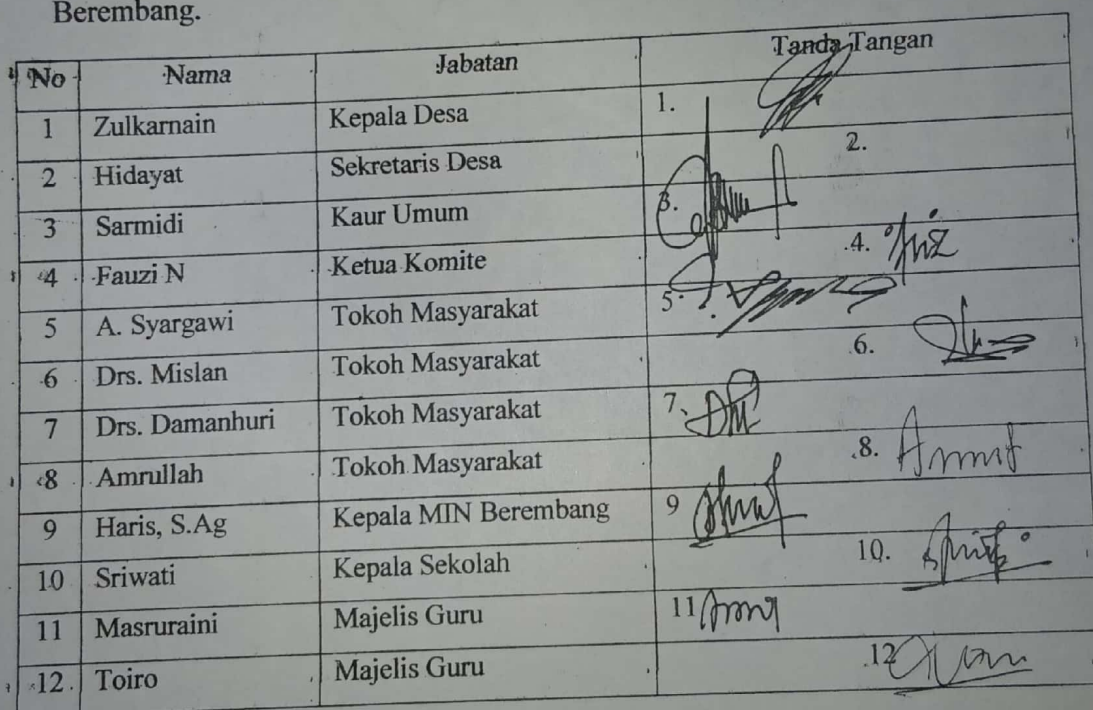 Berembang.
No Nama Jabatan Tanda Tangan
1 Zulkarnain Kepala Desa 1.
2 Hidayat Sekretaris Desa 2.
3 Sarmidi Kaur Umum 3.
4 Fauzi N Ketua Komite 4.
5 A. Syargawi Tokoh Masyarakat 5.
6 Drs. Mislan Tokoh Masyarakat 6.
7 Drs. Damanhuri Tokoh Masyarakat 7.
8 Amrullah Tokoh Masyarakat 8.
9 Haris, S.Ag Kepala MIN Berembang 9
10 Sriwati Kepala Sekolah 10.
11 Masruraini Majelis Guru 11
12. Toiro Majelis Guru 12